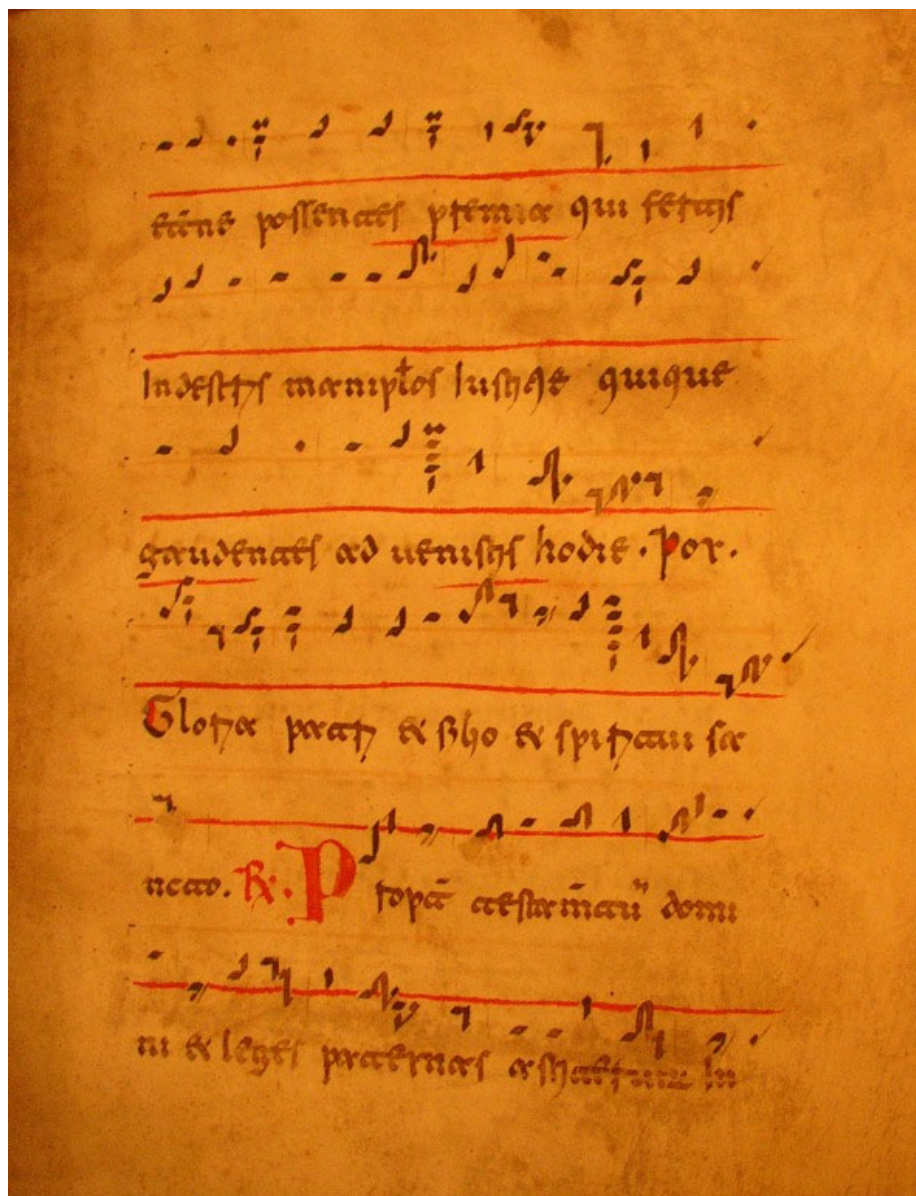 et̄ne possentes premia qui fertis
Indestris manipłos quique
gaudentes ad uenistis hodie · Por ·
Gloria patri & filio & spiritui sa
ncto. R. Propt̄ testam̄tū domi
ni & leges paternas in